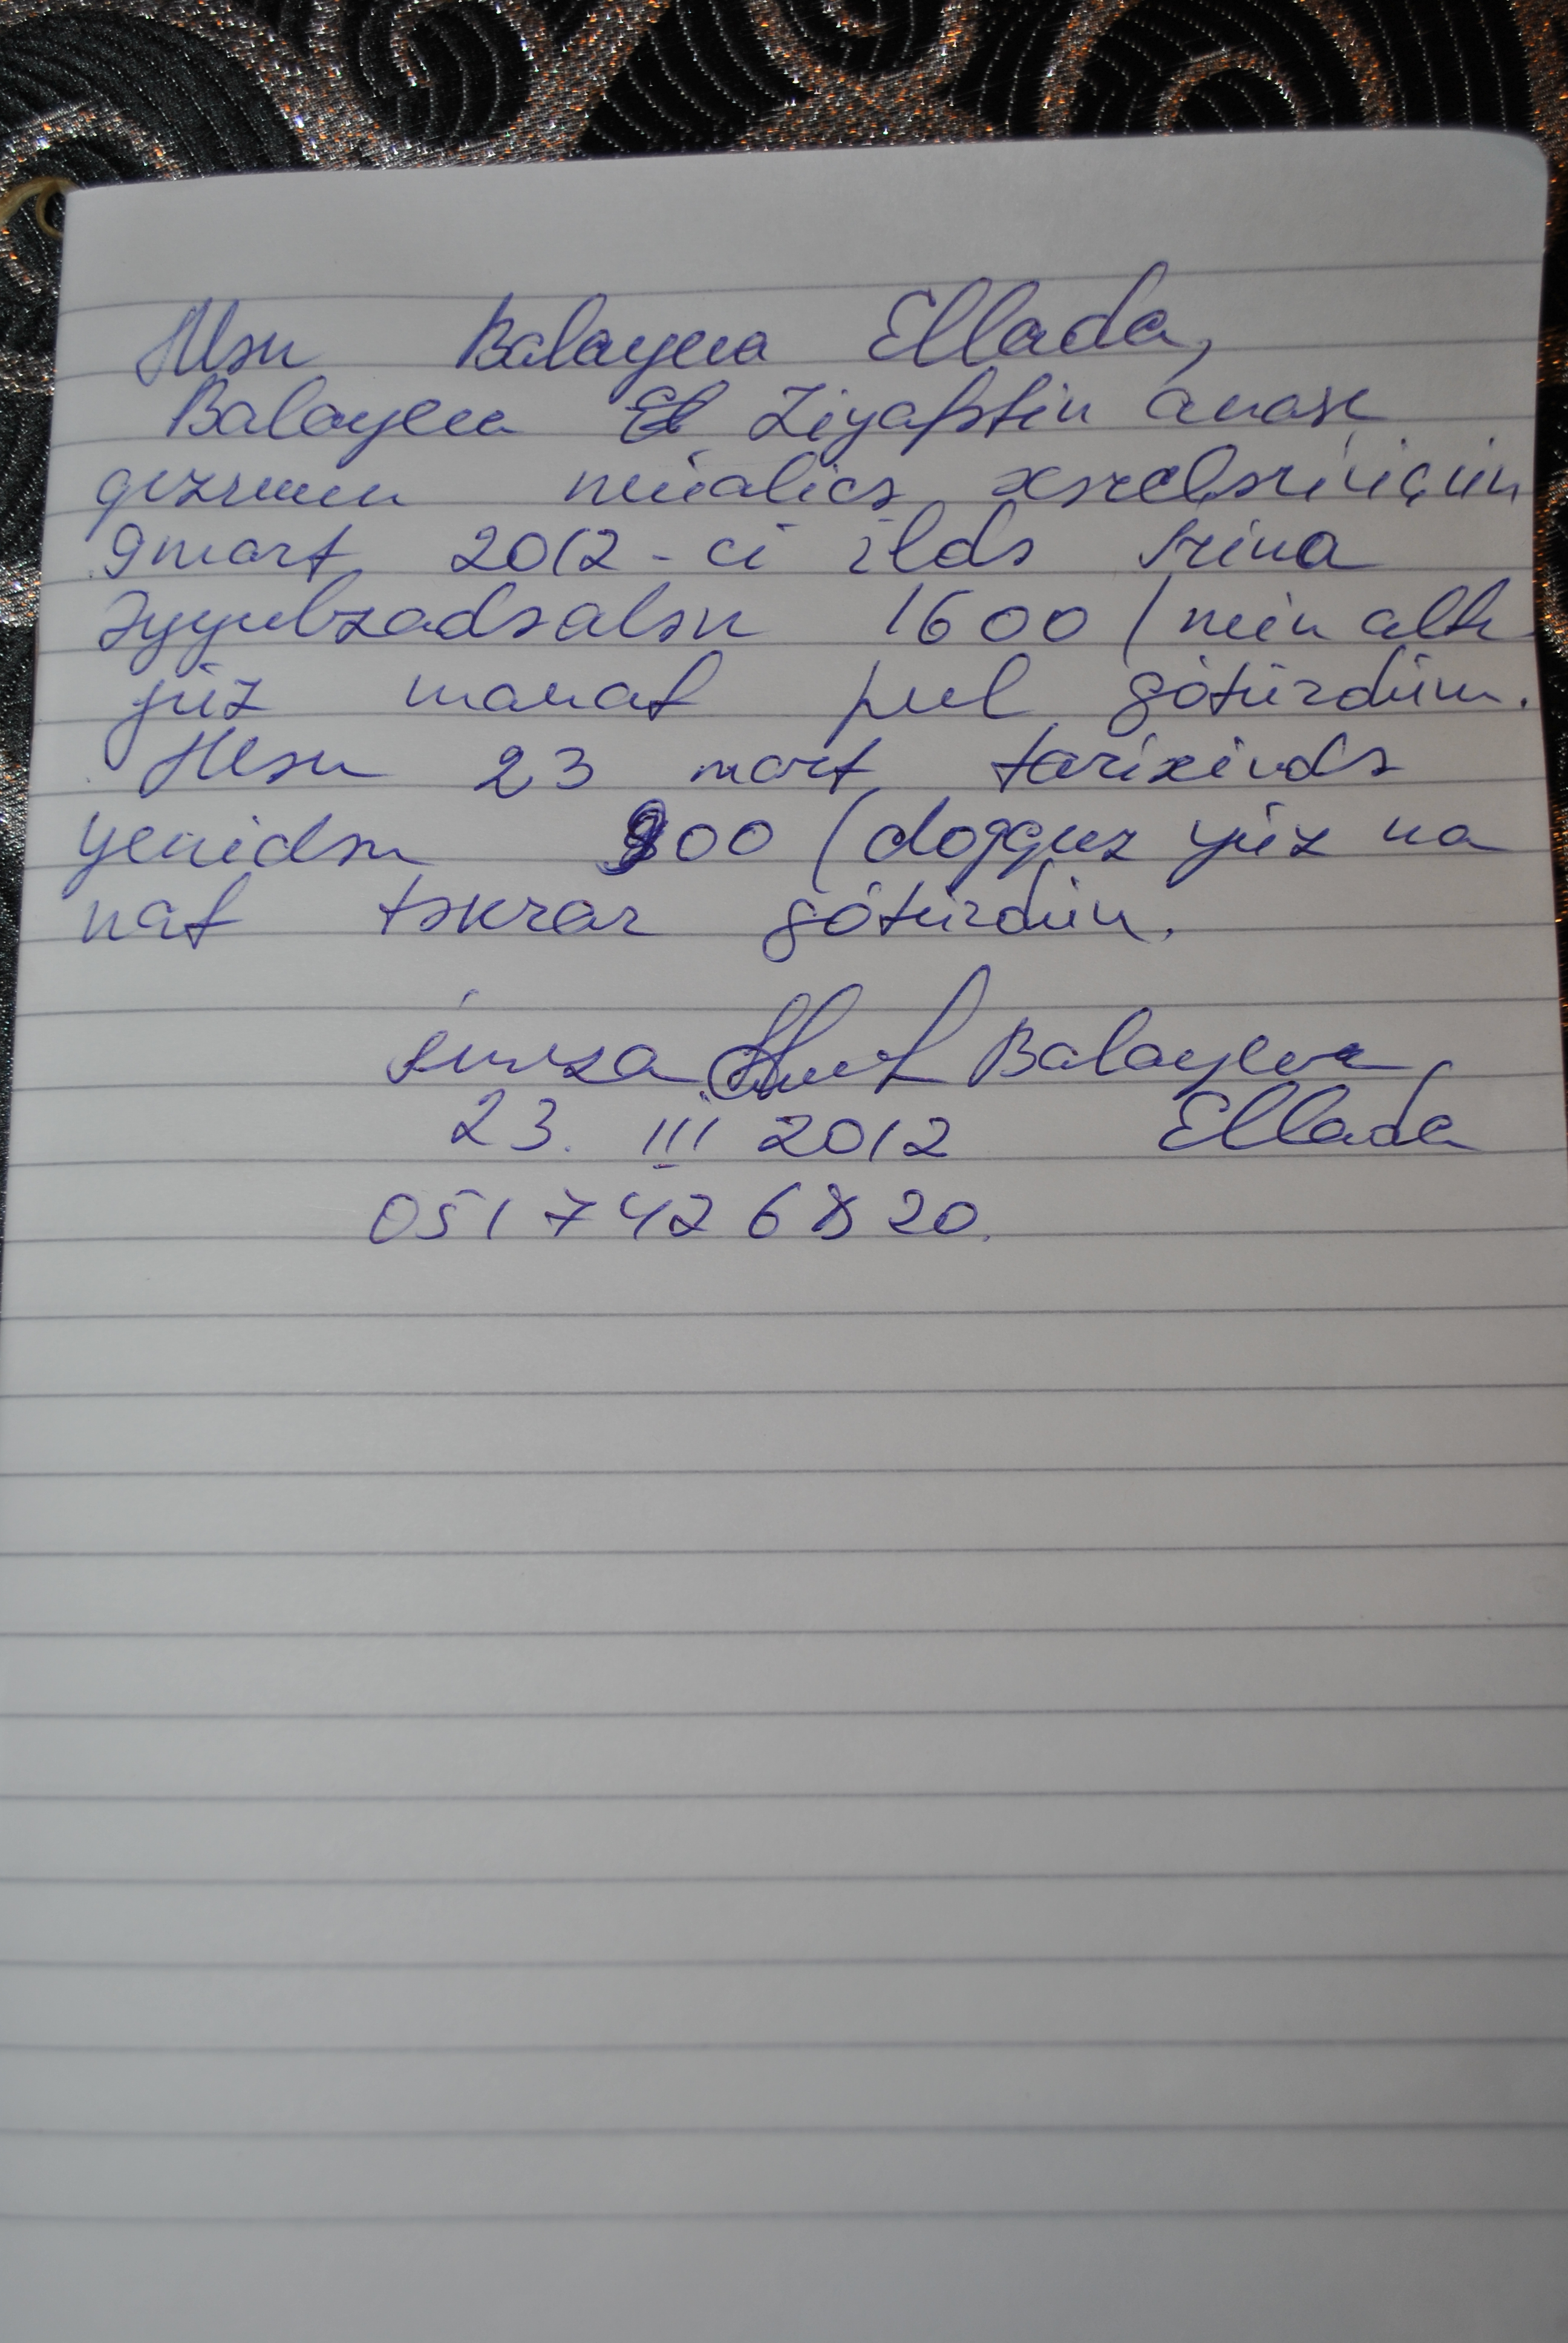 Mən Balayeva Ellada,
Balayeva Ziyafətin anası
qızımın müalicə xərcləri üçün
9 mart 2012-ci ildə İrina
Əyyubzadə alən 1600 (min altı
yüz manat pul götürdüm.
Mən 23 mart tarixində
yenidən 900 (doqquz yüz ma
nat təkrar götürdüm.
imza Balayeva
23. III 2012 Ellada
051 742 68 20.